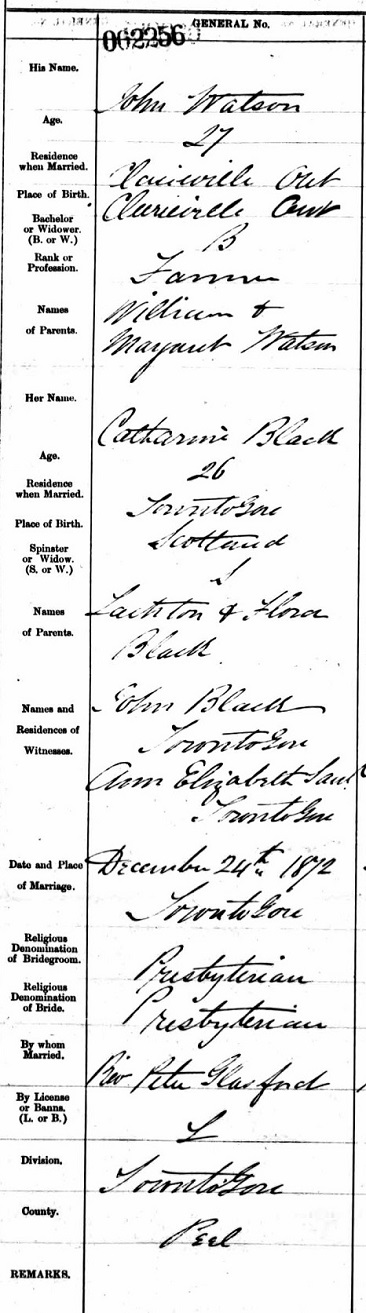 GENERAL No.
062256
His Name.
John Watson
Age.
27
Residence
when Married.
Claireville Ont
Place of Birth.
Claireville Ont
Bachelor
or Widower.
(B. or W.)
B
Rank or
Profession.
Farmer
Names
of Parents.
William &
Margaret Watson
Her Name.
Catharine Black
Age.
26
Residence
when Married.
Toronto Gore
Place of Birth.
Scotland
Spinster
or Widow.
(S. or W.)
S
Names
of Parents.
& Flora
Black
Names and
Residences of
Witnesses.
John Black
Toronto Gore
Ann Elizabeth
Toronto Gore
Date and Place
of Marriage.
December 24th 1872
Toronto Gore
Religious
Denomination
of Bridegroom.
Presbyterian
Religious
Denomination
of Bride.
Presbyterian
By whom
Married.
Rev Peter Glasford
By License
or Banns.
(L. or B.)
L
Division.
Toronto Gore
County.
Peel
REMARKS.